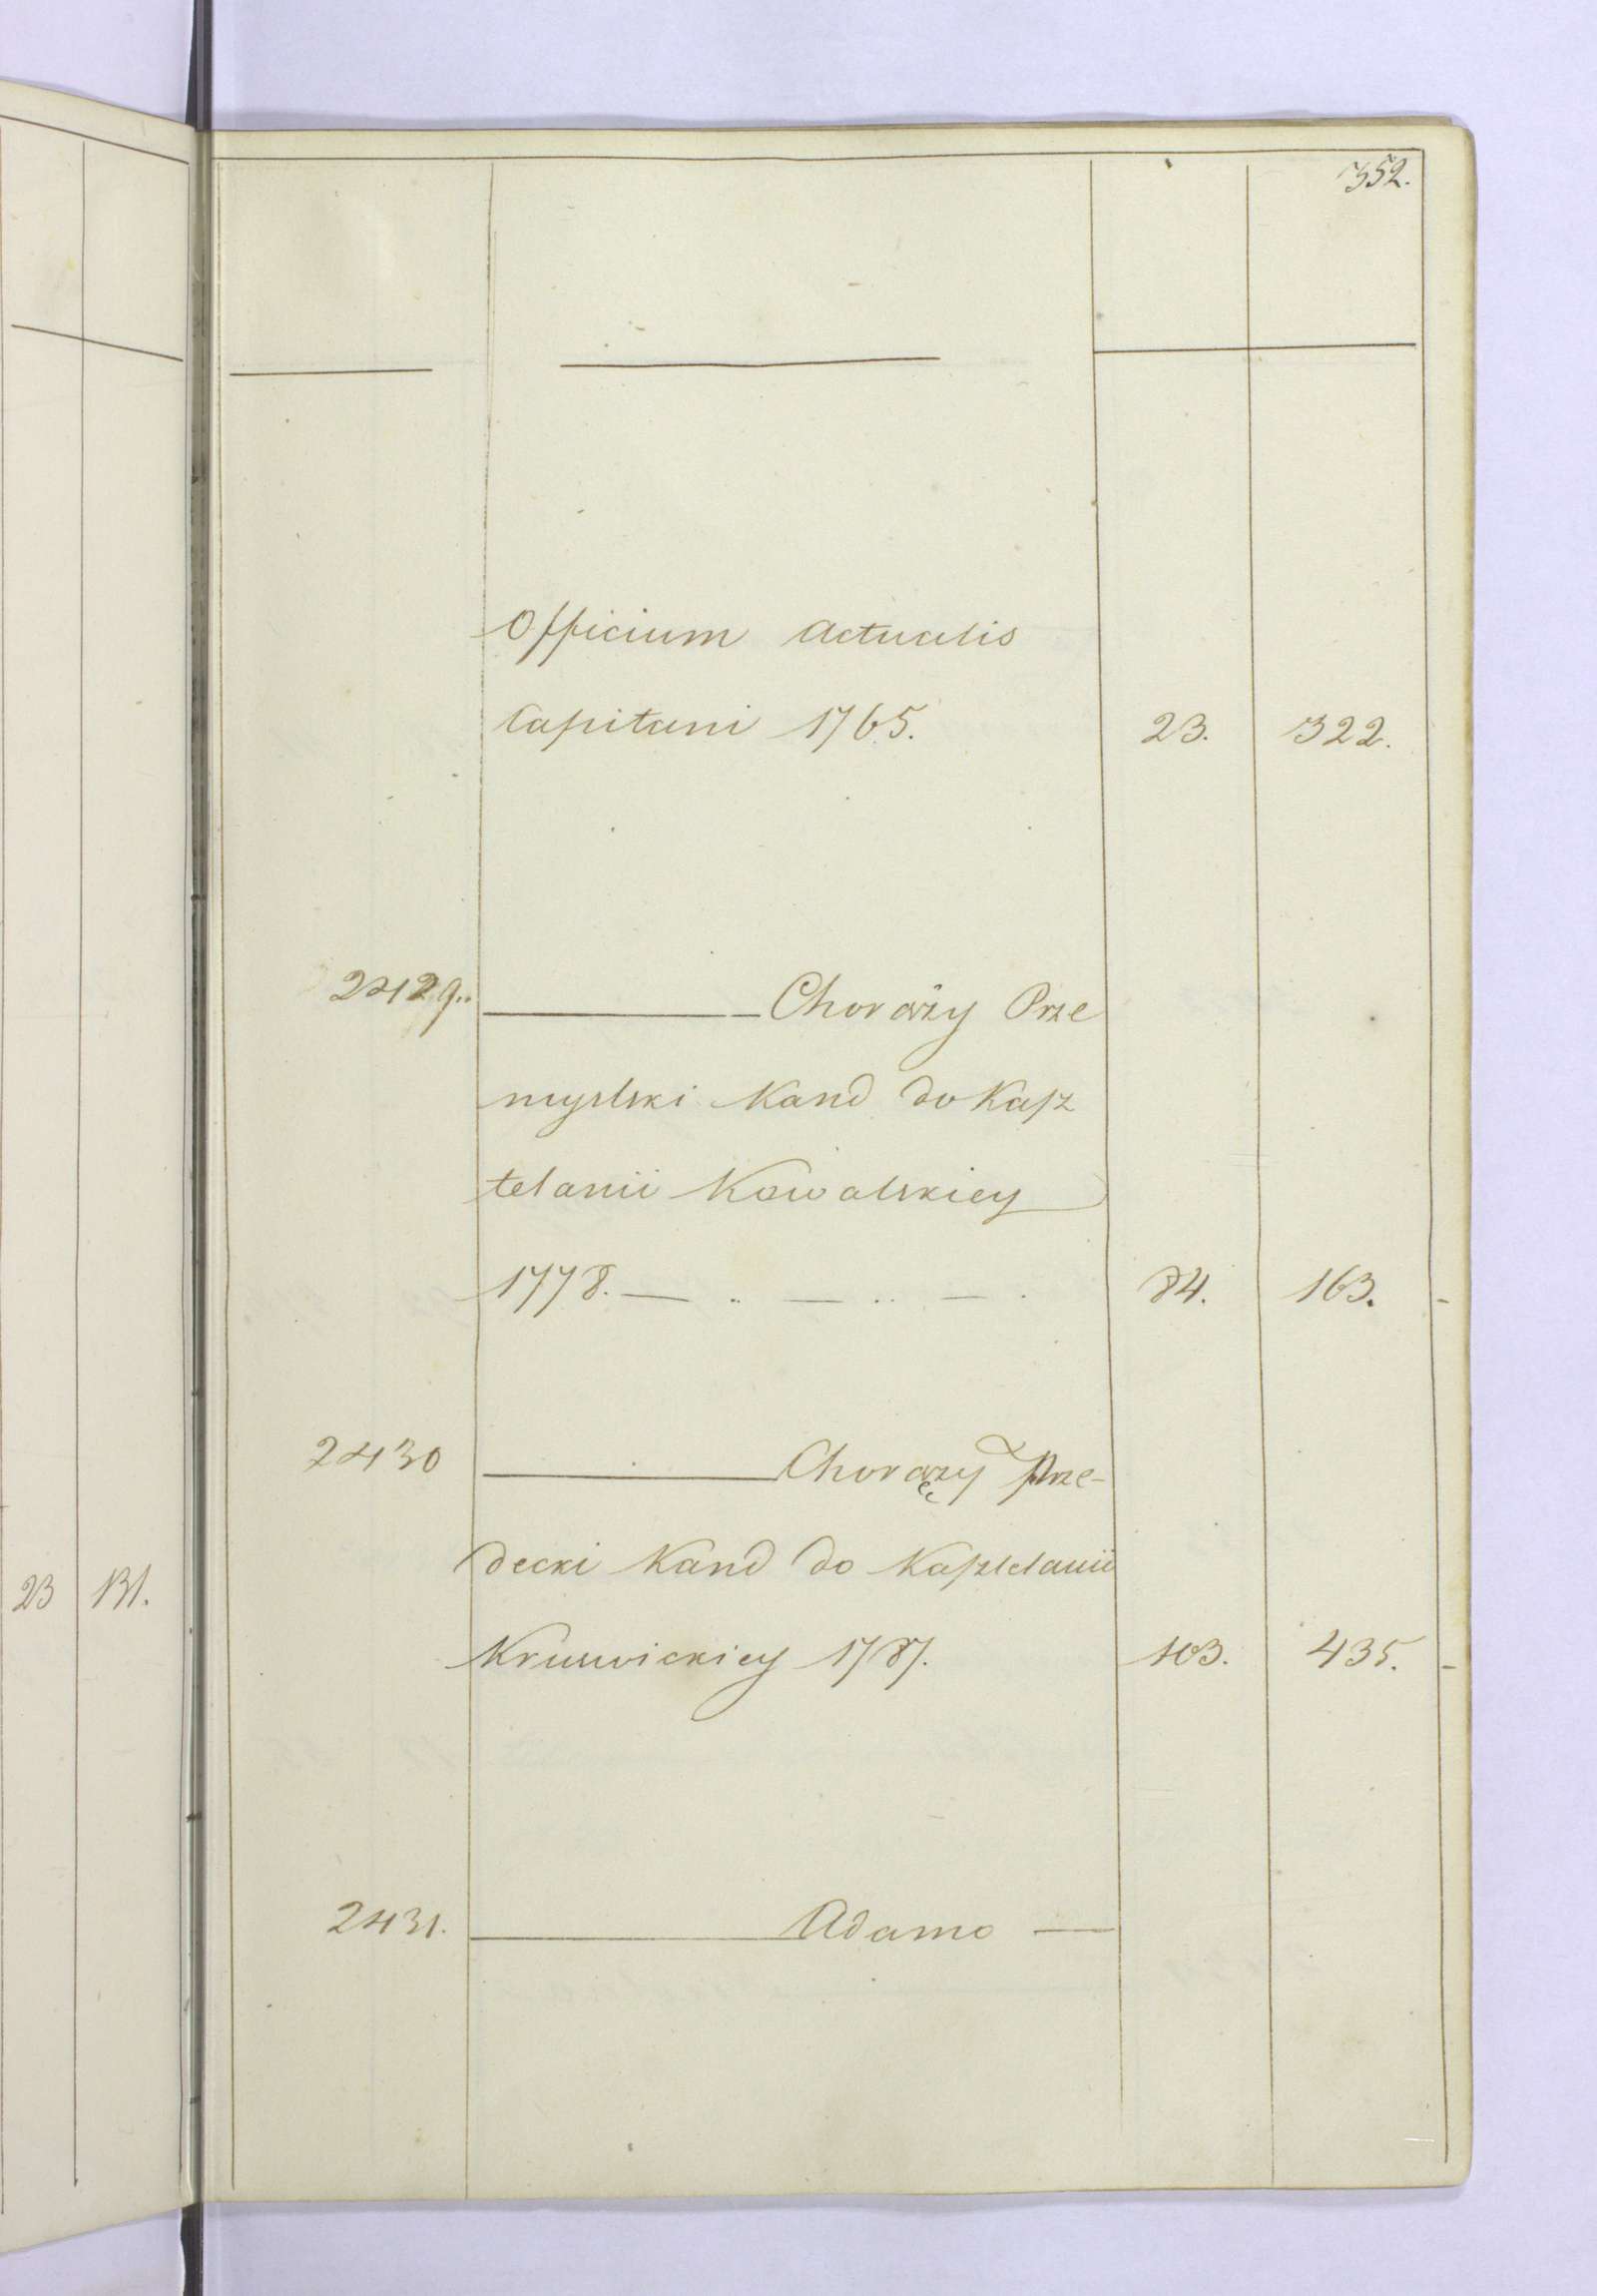 352.
Officium Actualis
Capitani 1765. 23. 322.
2429. Chorąży Prze
myslski Kand do Kasz
telanii Kowalskiey
1778. 84. 163.
2430 Chorązy Prze-
decki Kand do Kasztelanii
Kruswickiey 1787. 103. 435.
2431. Adamo
23 131.